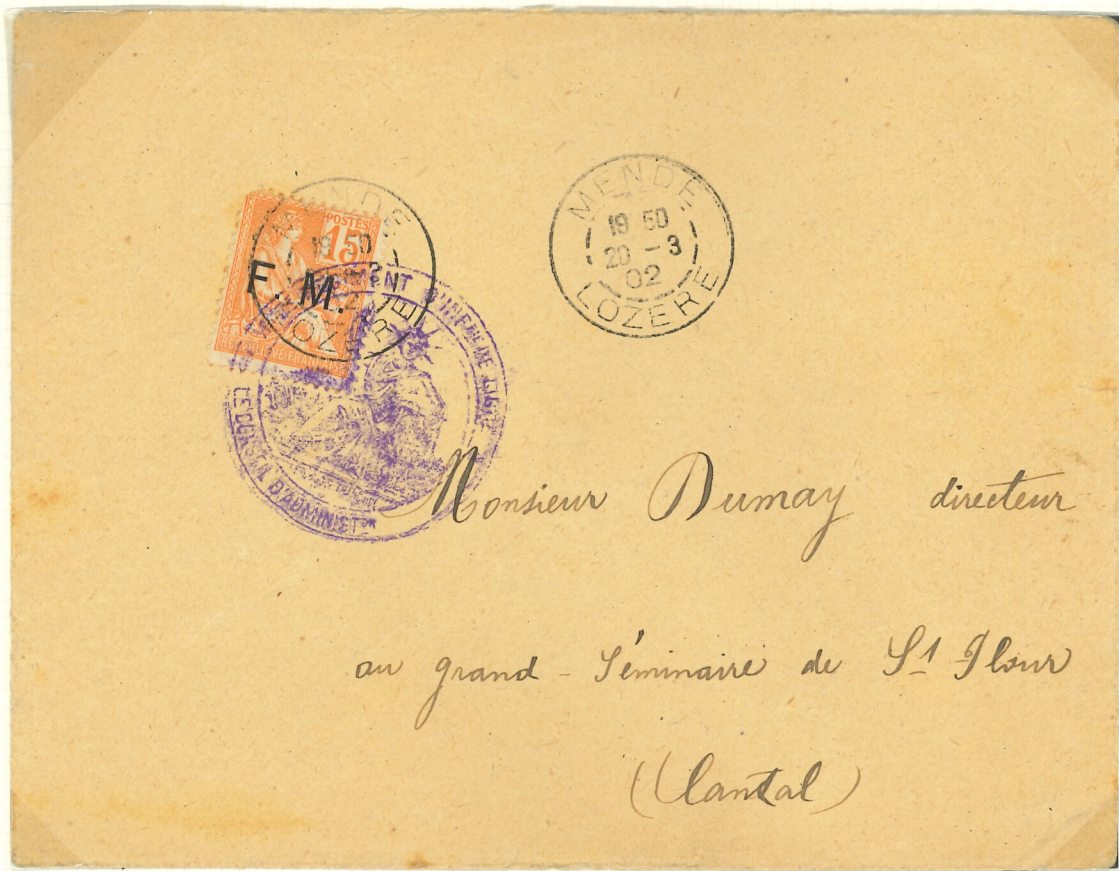 POSTES
15
F. M.
RÉPUBLIQUE FRANÇAISE
MENDE
19 50
LOZERE
MENDE
19 50
20 - 3
02
LOZERE
D'INFANTERIE DE LIGNE
LE CONSEIL D'ADMINISTon
Monsieur Dumay directeur
au grand - Séminaire de St Flour
(Cantal)